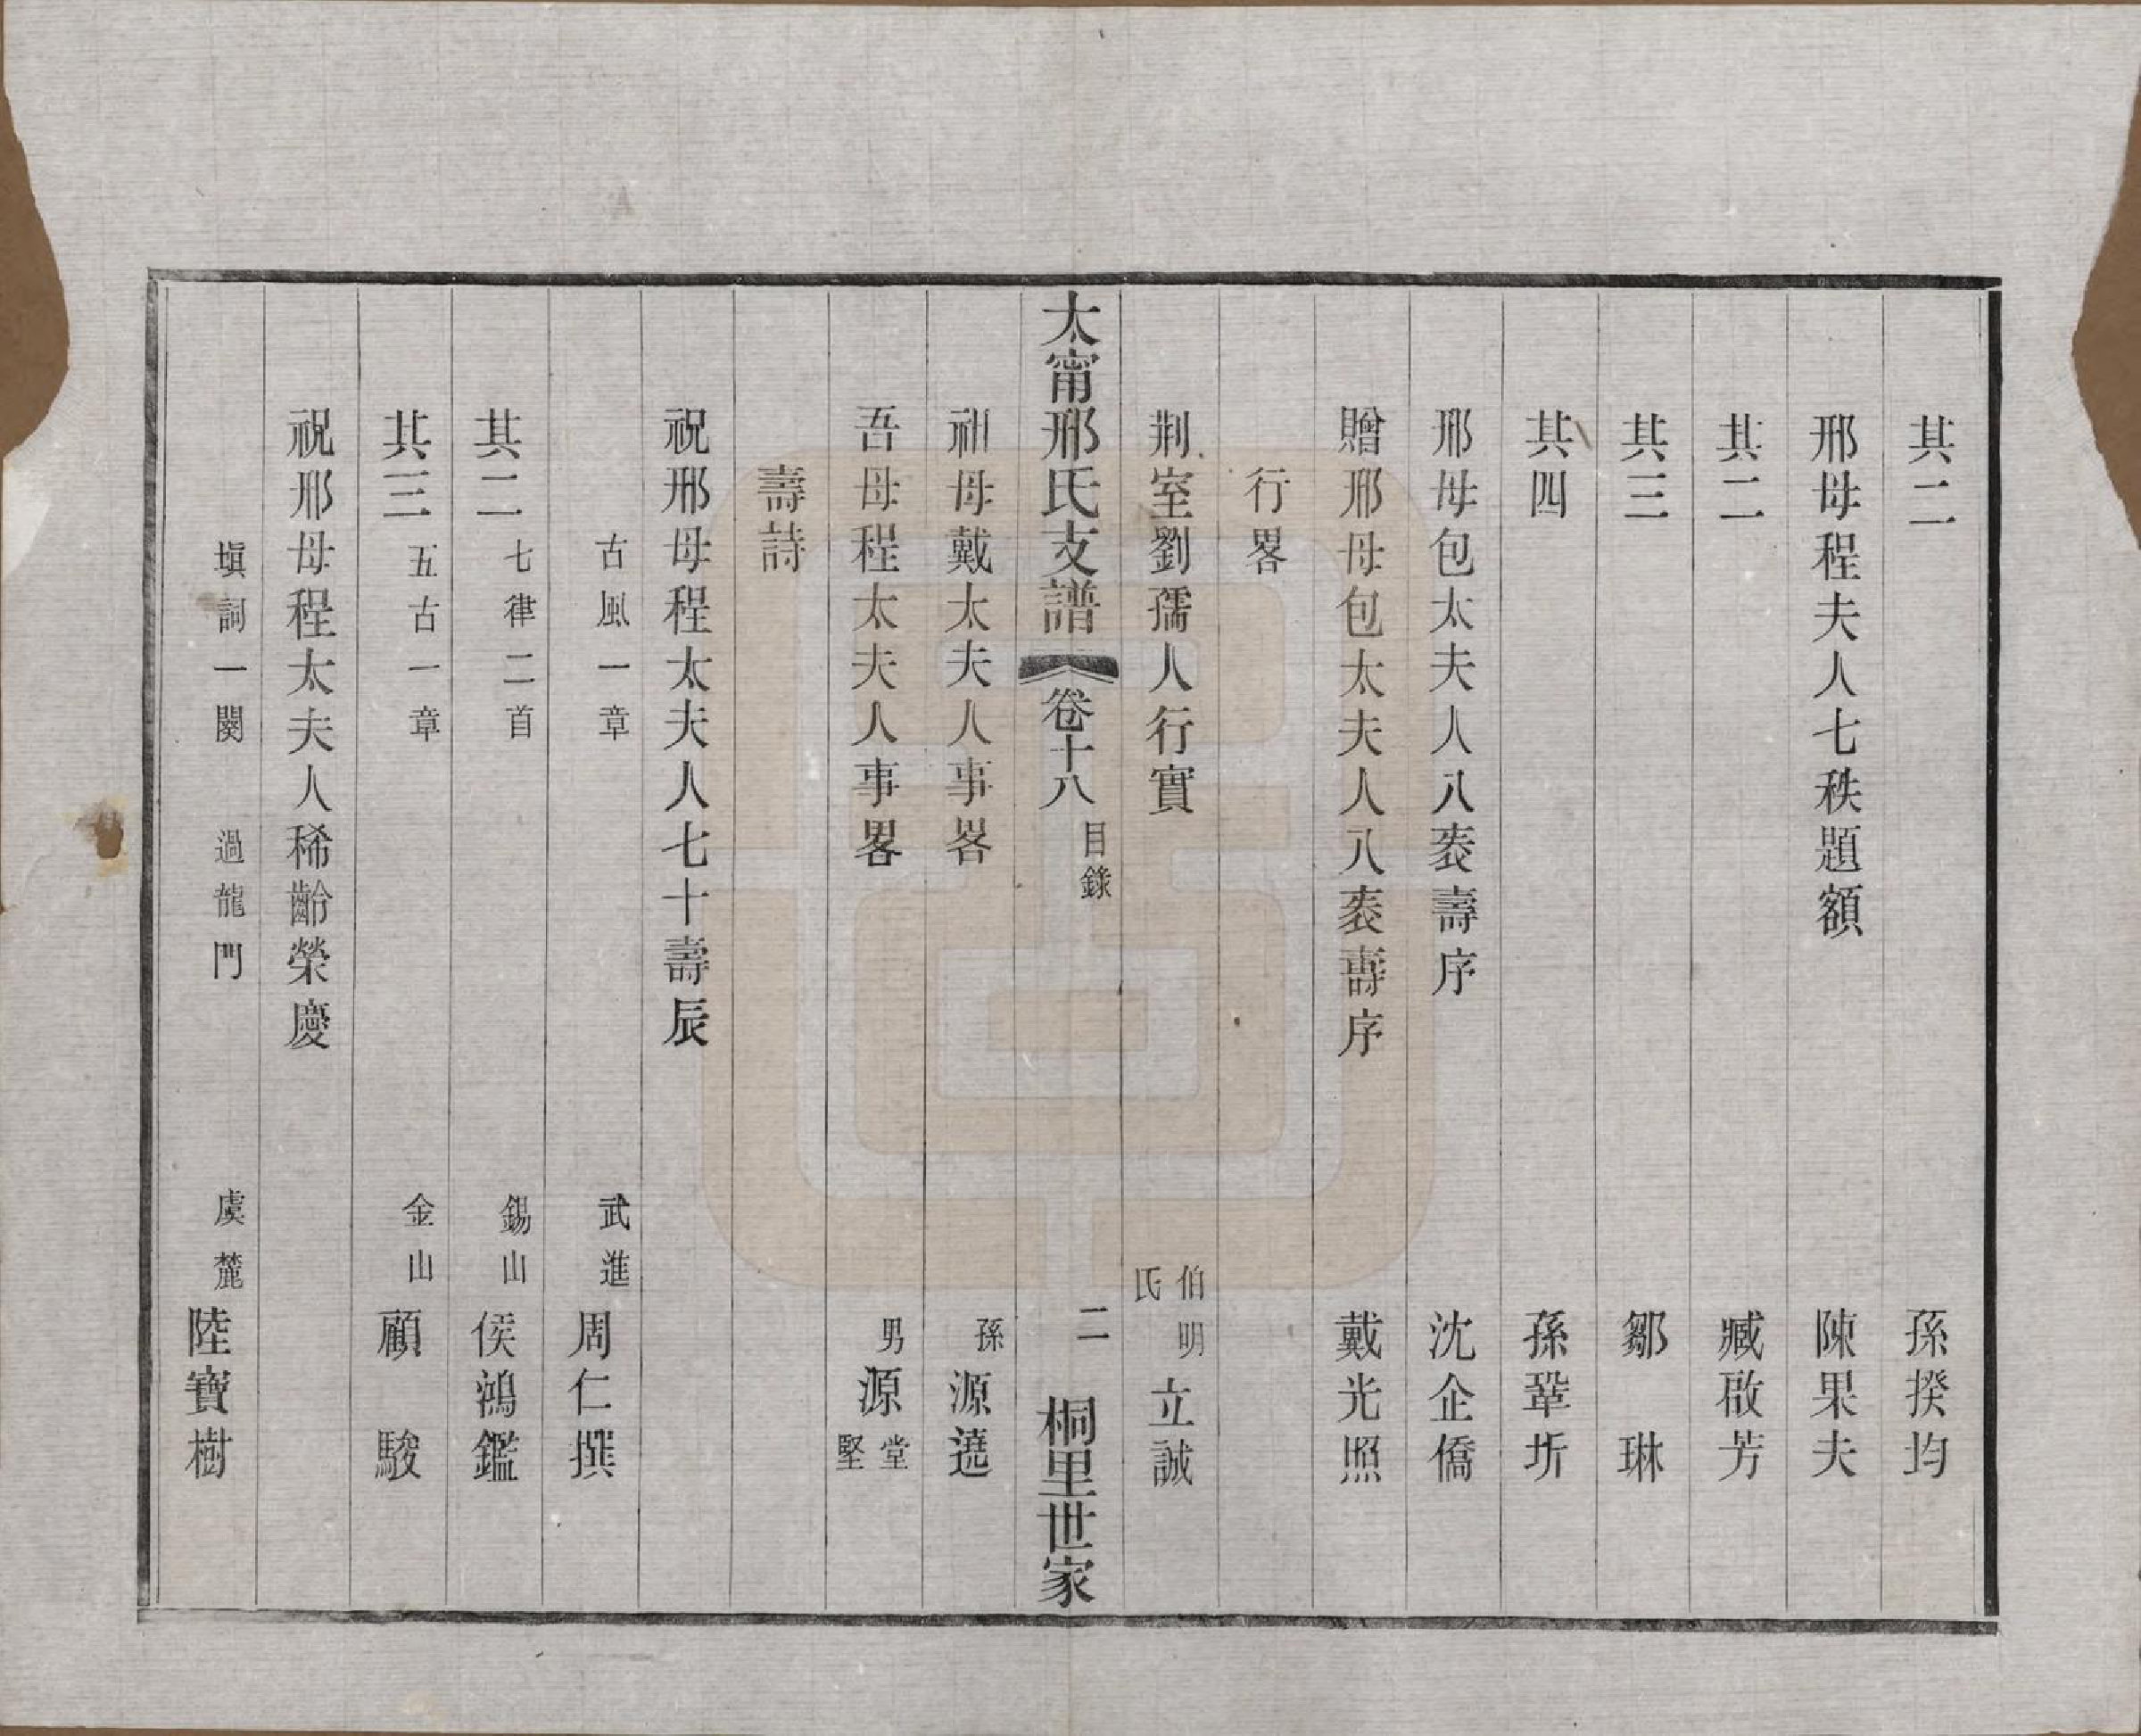 其二　孫揆均
邢母程夫人七秩題額　陳果夫
其二　臧啟芳
其三　鄒琳
其四　孫鞏圻
邢母包太夫人八袠壽序　沈企僑
贈邢母包太夫人八袠壽序　戴光照
行畧
荆室劉孺人行實　伯明氏立誠
太甯邢氏支譜　卷十八　目錄　二　桐里世家
祖母戴太夫人事畧　孫源遶
吾母程太夫人事畧　男源堂堅
壽詩
祝邢母程太夫人七十壽辰
古風一章　武進周仁撰
其二　七律二首　錫山侯鴻鑑
其三　五古一章　金山顧駿
祝邢母程太夫人稀齡榮慶
塡詞一闋　過龍門　虞麓陸寶樹